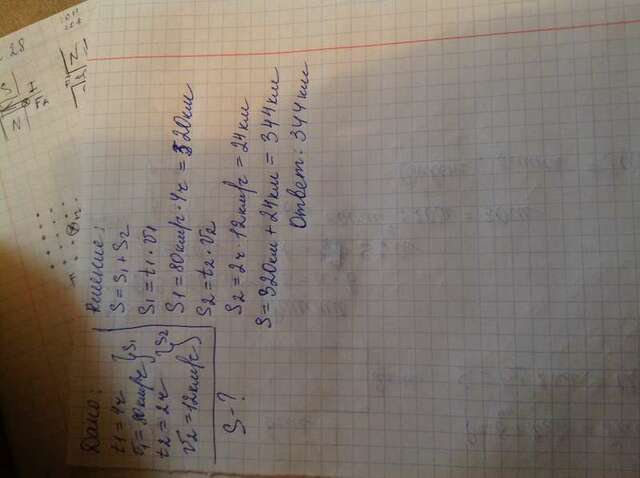 Дано:
t1 = 4ч
v1 = 80км/ч } S1
t2 = 2ч
v2 = 12км/ч } S2
S - ?
Решение:
S = S1 + S2
S1 = t1 · v1
S1 = 80км/ч · 4ч = 320км
S2 = t2 · v2
S2 = 2ч · 12км/ч = 24км
S = 320км + 24км = 344км
Ответ: 344км
N
S
I
N